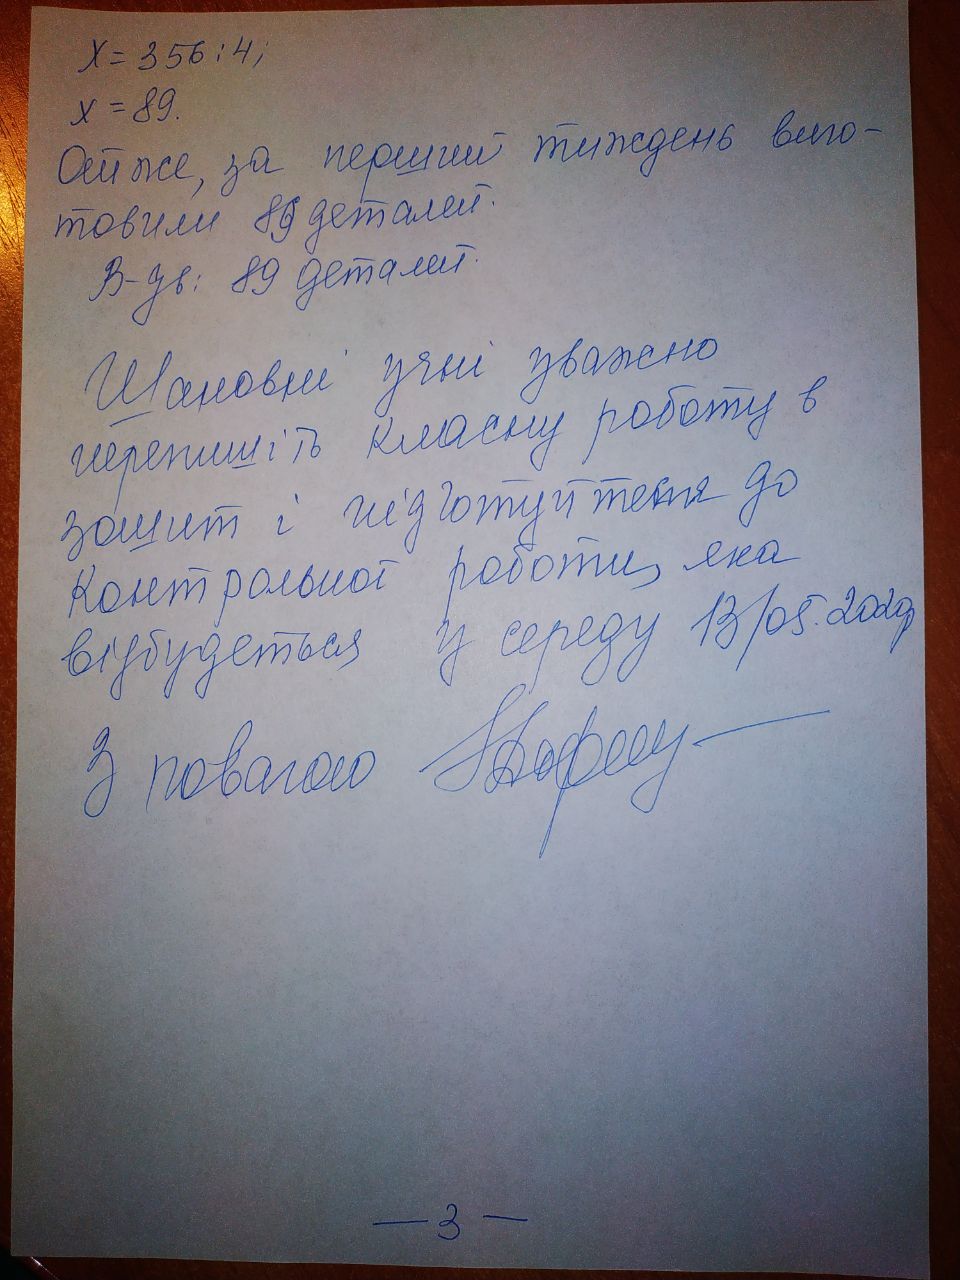 X = 356 : 4;
x = 89.
Отже, за перший тиждень виго-
товили 89 деталей.
В-дь: 89 деталей.
Шановні учні уважно
перепишіть класну роботу в
зошит і підготуйтеся до
контрольної роботи, яка
відбудеться у середу 13/05.2020р
З повагою
— 3 —